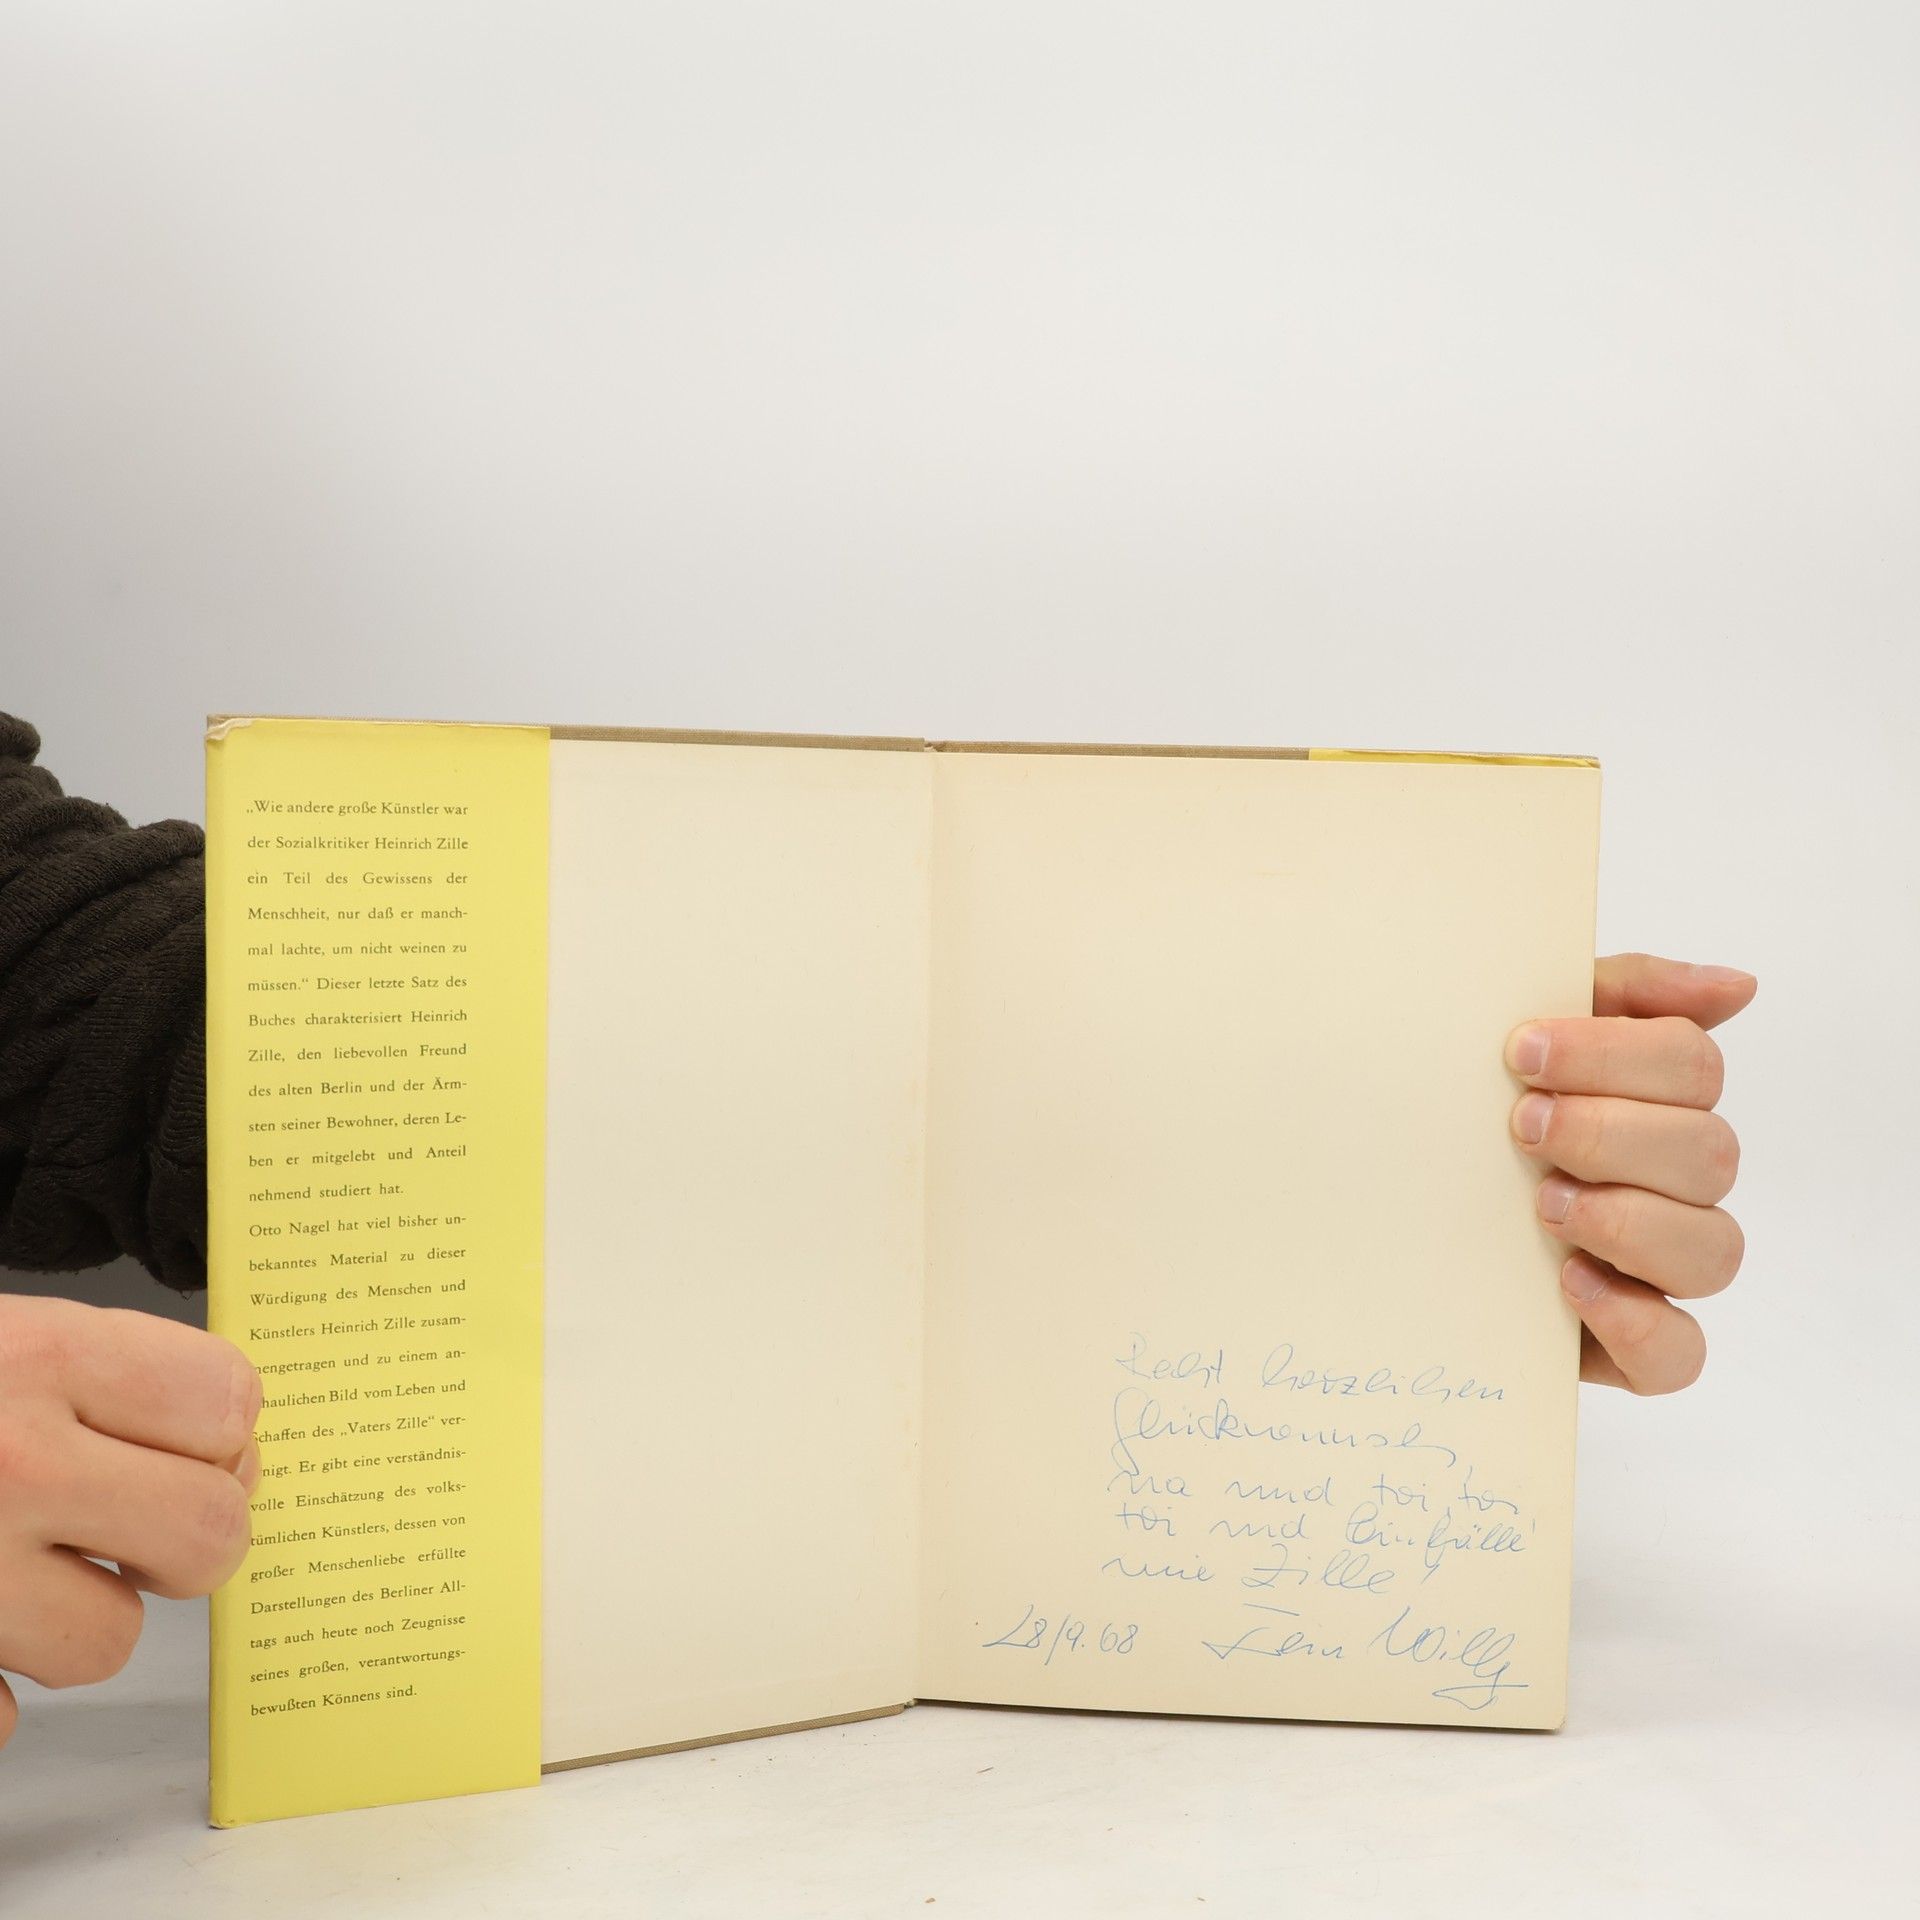 „Wie andere große Künstler war
der Sozialkritiker Heinrich Zille
ein Teil des Gewissens der
Menschheit, nur daß er manch-
mal lachte, um nicht weinen zu
müssen.“ Dieser letzte Satz des
Buches charakterisiert Heinrich
Zille, den liebevollen Freund
des alten Berlin und der Ärm-
sten seiner Bewohner, deren Le-
ben er mitgelebt und Anteil
nehmend studiert hat.
Otto Nagel hat viel bisher un-
bekanntes Material zu dieser
Würdigung des Menschen und
Künstlers Heinrich Zille zusam-
mengetragen und zu einem an-
schaulichen Bild vom Leben und
Schaffen des „Vaters Zille“ ver-
einigt. Er gibt eine verständnis-
volle Einschätzung des volks-
tümlichen Künstlers, dessen von
großer Menschenliebe erfüllte
Darstellungen des Berliner All-
tags auch heute noch Zeugnisse
seines großen, verantwortungs-
bewußten Könnens sind.
Recht herzlichen
Glückwunsch,
na und toi, toi,
toi und Einfälle
wie Zille!
28/9.68 Dein Willy